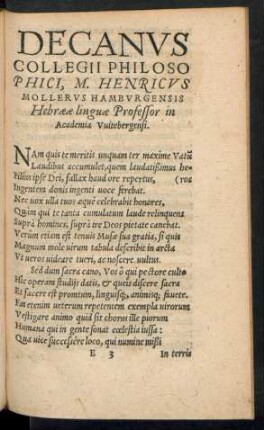 DECANVS
COLLEGII PHILOSO
PHICI, M. HENRICVS
MOLLERVS HAMBVRGENSIS
Hebrææ linguæ Professor in
Academia Vuitebergensi.
NAm quis te meritis unquam ter maxime Vatũ
Laudibus accumulet, quem laudatissimus he-
Filius ipse Dei, fallax haud ore repertus, (ros
Ingentem donis ingenti uoce ferebat.
Nec uox ulla tuos æquè celebrabit honores,
Quùm qui te tanta cumulatum laude relinquens
Suprà homines, suprà tre Deos pietate canebat.
Verùm etiam est tenuis Musæ sua gratia, si quis
Magnum mole uirum tabula describit in arcta
Vt ueros uideare tueri, ac noscere uultus.
Sed dum sacra cano, Vos ô qui pectore culto
Hîc operam studijs datis, &amp; queis discere sacra
Et facere est promtum, linguisq;, animisq; fauete.
Fas etenim ueterum repetentem exempla uirorum
Vestigare animo quid sit chorus ille piorum
Humana qui in gente sonat cœlestia iussa:
Qua uice successêre loco, qui numine missi
E 3 In terris